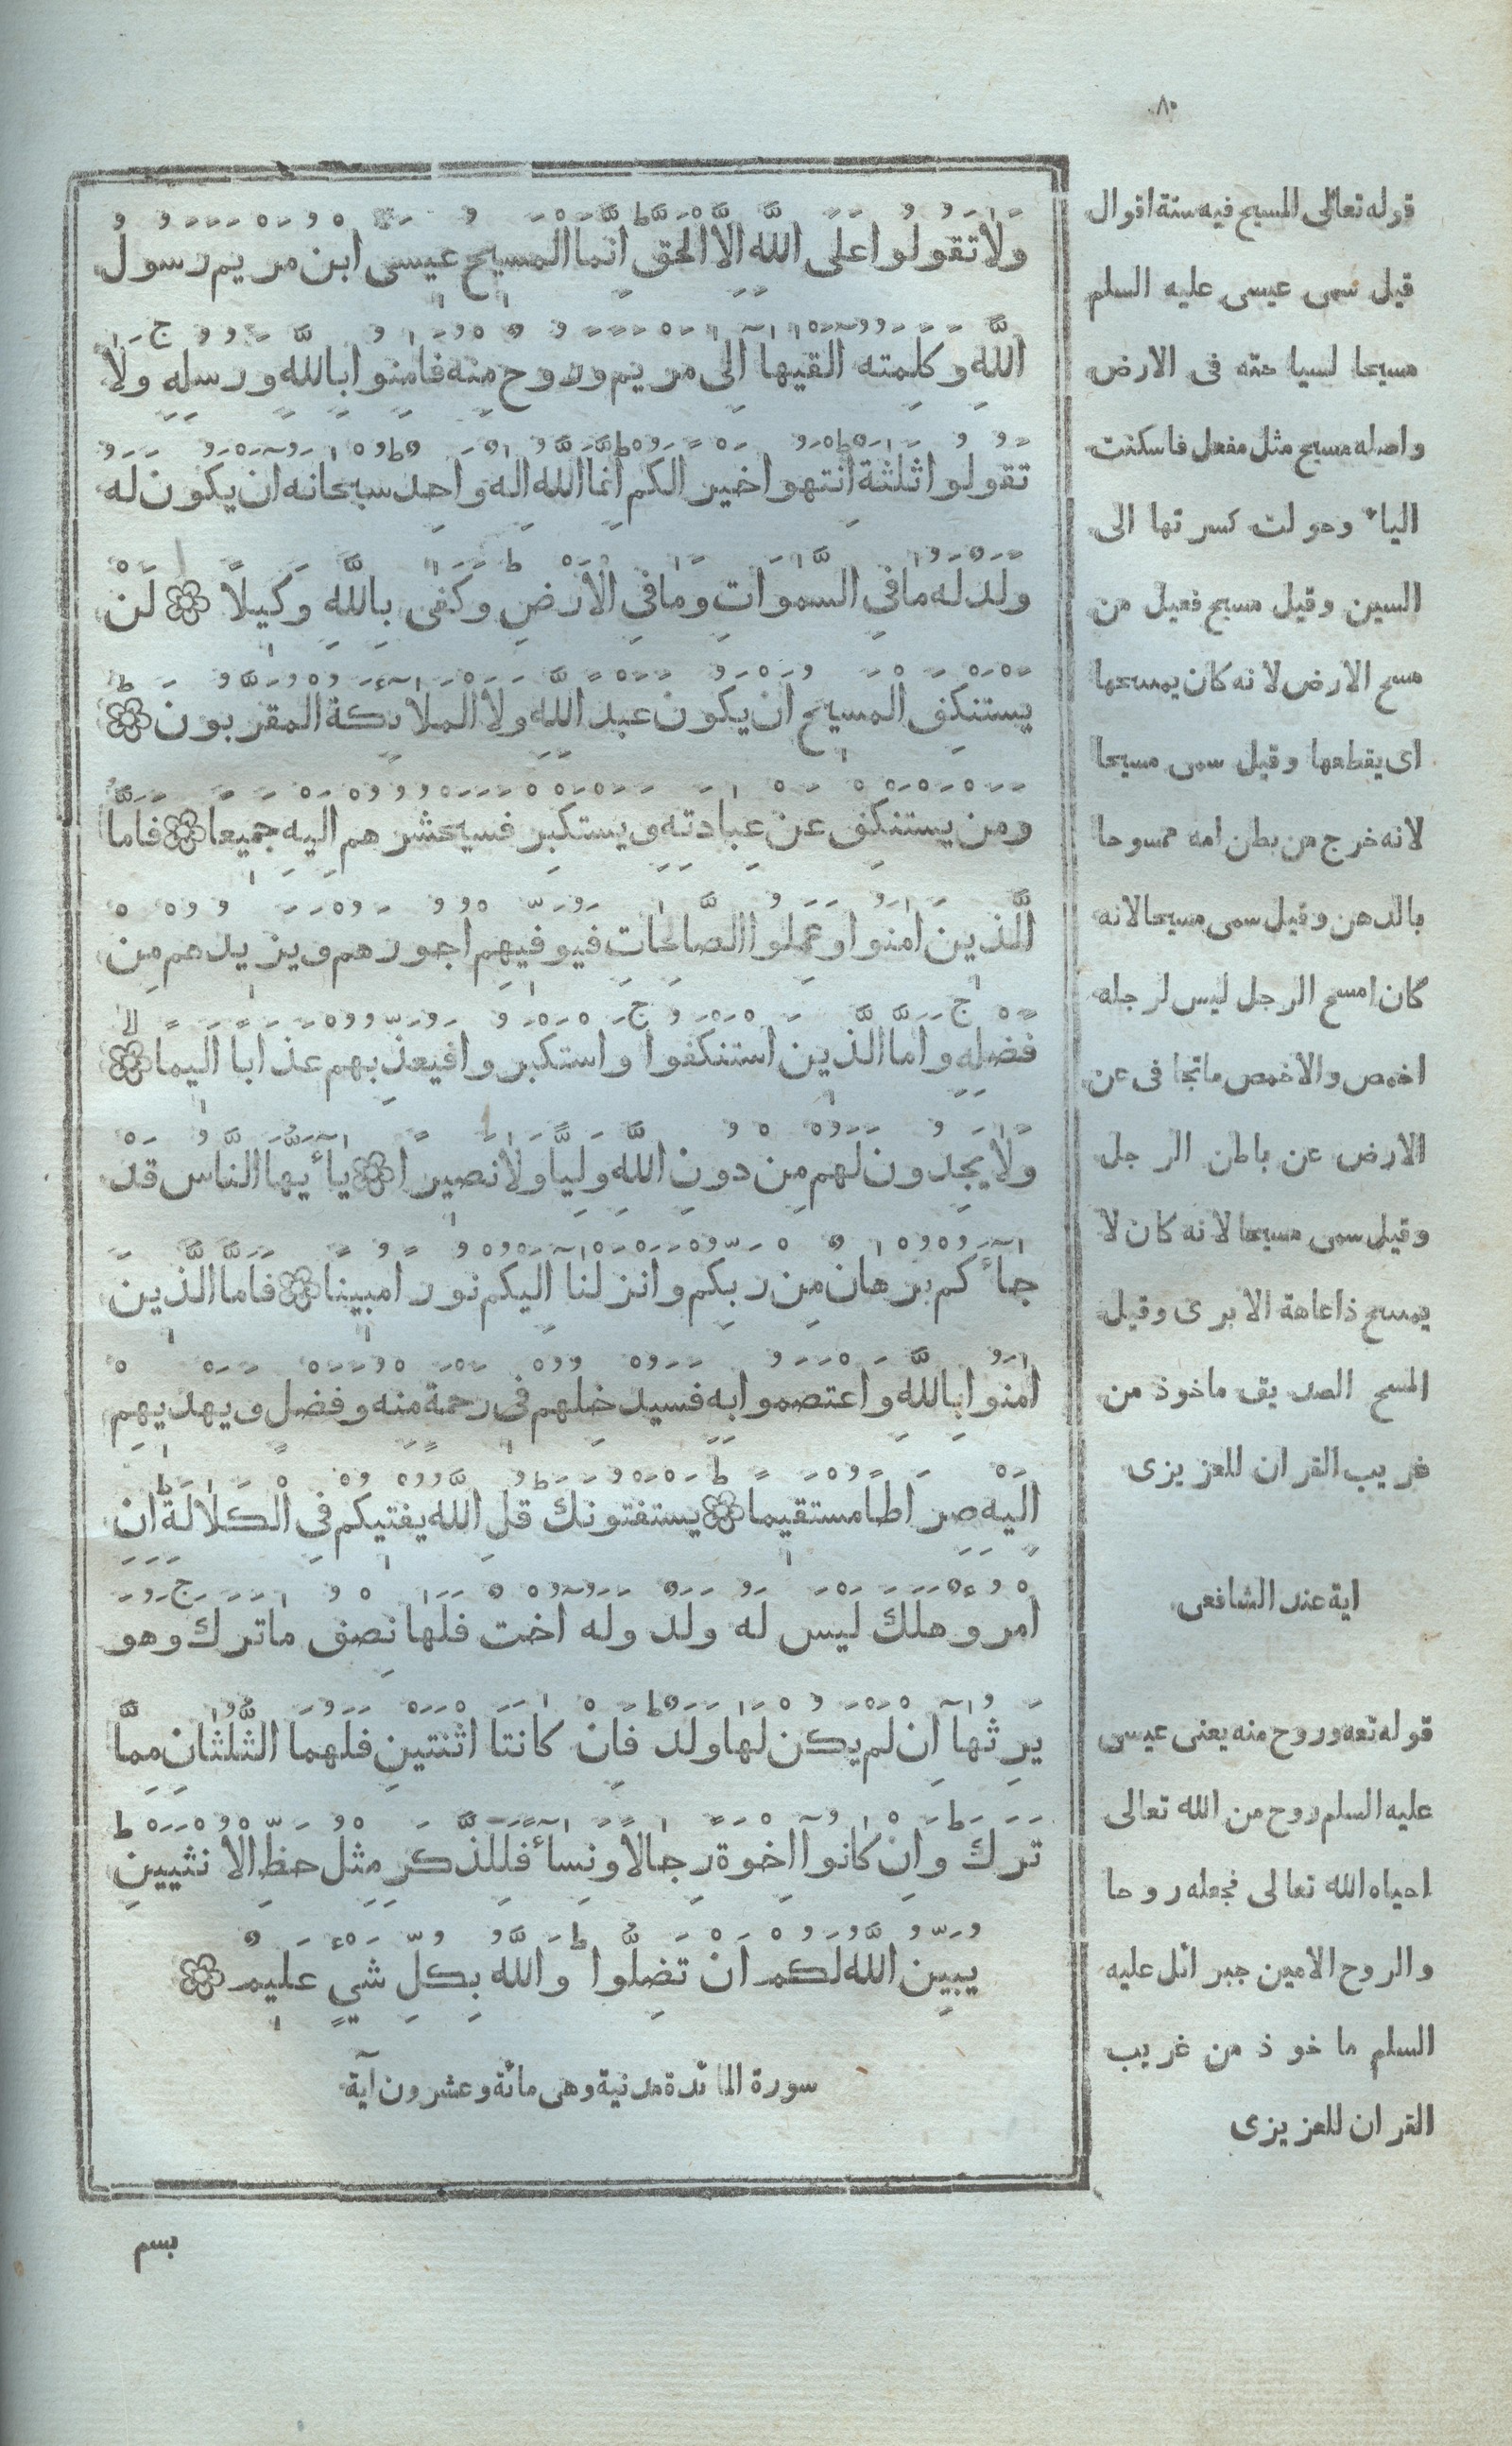 ٨٠
وَلَا تَقُولُوا عَلَى اللَّهِ إِلَّا الْحَقَّ ط إِنَّمَا الْمَسِيحُ عِيسَى ابْنُ مَرْيَمَ رَسُولُ
اللَّهِ وَكَلِمَتُهُ أَلْقٰيهَا إِلَى مَرْيَمَ وَرُوحٌ مِنْهُ فَاٰمِنُوا بِاللَّهِ وَرُسُلِهِ ج وَلَا
تَقُولُوا ثَلٰثَةٌ ط اِنْتَهُوا خَيْرًا لَكُمْ ط إِنَّمَا اللَّهُ إِلٰهٌ وَاحِدٌ ط سُبْحَانَهُ أَنْ يَكُونَ لَهُ
وَلَدٌ لَهُ مَا فِي السَّمٰوَاتِ وَمَا فِي الْاَرْضِ ط وَكَفٰى بِاللَّهِ وَكِيلًا ۞ لَنْ
يَسْتَنْكِفَ الْمَسِيحُ أَنْ يَكُونَ عَبْدًا لِلَّهِ وَلَا الْمَلَآئِكَةُ الْمُقَرَّبُونَ ط ۞
وَمَنْ يَسْتَنْكِفْ عَنْ عِبَادَتِهِ وَيَسْتَكْبِرْ فَسَيَحْشُرُهُمْ إِلَيْهِ جَمِيعًا ۞ فَاَمَّا
الَّذِينَ اٰمَنُوا وَعَمِلُوا الصَّالِحَاتِ فَيُوَفِّيهِمْ اُجُورَهُمْ وَيَزِيدُهُمْ مِنْ
فَضْلِهِ ج وَاَمَّا الَّذِينَ اسْتَنْكَفُوا وَاسْتَكْبَرُوا فَيُعَذِّبُهُمْ عَذَابًا اَلِيمًا لا ۞
وَلَا يَجِدُونَ لَهُمْ مِنْ دُونِ اللَّهِ وَلِيًّا وَلَا نَصِيرًا ۞ يَآ أَيُّهَا النَّاسُ قَدْ
جَآءَكُمْ بُرْهَانٌ مِنْ رَبِّكُمْ وَاَنْزَلْنَآ اِلَيْكُمْ نُورًا مُبِينًا ۞ فَاَمَّا الَّذِينَ
اٰمَنُوا بِاللَّهِ وَاعْتَصَمُوا بِهِ فَسَيُدْخِلُهُمْ فِي رَحْمَةٍ مِنْهُ وَفَضْلٍ وَيَهْدِيهِمْ
اِلَيْهِ صِرَاطًا مُسْتَقِيمًا ط ۞ يَسْتَفْتُونَكَ ط قُلِ اللَّهُ يُفْتِيكُمْ فِي الْكَلَالَةِ ط اِنِ
امْرُؤٌ هَلَكَ لَيْسَ لَهُ وَلَدٌ وَلَهُ اُخْتٌ فَلَهَا نِصْفُ مَا تَرَكَ ج وَهُوَ
يَرِثُهَآ اِنْ لَمْ يَكُنْ لَهَا وَلَدٌ ط فَاِنْ كَانَتَا اثْنَتَيْنِ فَلَهُمَا الثُّلُثَانِ مِمَّا
تَرَكَ ط وَاِنْ كَانُوٓا اِخْوَةً رِجَالًا وَنِسَآءً فَلِلذَّكَرِ مِثْلُ حَظِّ الْاُنْثَيَيْنِ ط
يُبَيِّنُ اللَّهُ لَكُمْ اَنْ تَضِلُّوا ط وَاللَّهُ بِكُلِّ شَيْءٍ عَلِيمٌ ۞
سورة المائدة مدنية وهى مائة وعشرون آية
بسم
قوله تعالى المسيح فيه ستة اقوال
قيل سمى عيسى عليه السلم
مسيحا لسياحته فى الارض
واصله مسيح مثل مفعل فاسكنت
الياء وحولت كسرتها الى
السين وقيل مسيح فعيل من
مسح الارض لانه كان يمسحها
اى يقطعها وقيل سمى مسيحا
لانه خرج من بطن امه ممسوحا
بالدهن وقيل سمى مسيحا لانه
كان امسح الرجل ليس لرجله
اخمص والاخمص ما تجافى عن
الارض عن باطن الرجل
وقيل سمى مسيحا لانه كان لا
يمسح ذا عاهة الا برى وقيل
المسح الصديق ماخوذ من
غريب القران للعزيزى
اية عند الشافعى
قوله تعه وروح منه يعنى عيسى
عليه السلم روح من الله تعالى
احياه الله تعالى فجعله روحا
والروح الامين جبرائل عليه
السلم ماخوذ من غريب
القران للعزيزى